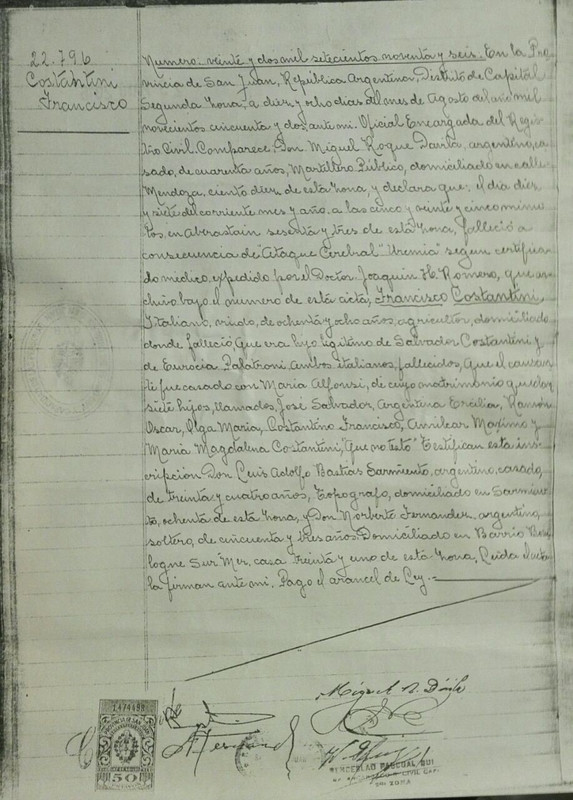 22.796
Costantini
Francisco
Numero: veinte y dos mil setecientos noventa y seis. En la Pro
vincia de San Juan, República Argentina, Distrito de Capital
Segunda zona, a diez y ocho dias del mes de Agosto del año mil
novecientos cincuenta y dos, ante mi. Oficial Encargada del Regis
tro Civil. Comparece. Don Miguel Roque Davila, argentino, ca
sado, de cuarenta años, Martillero Público, domiciliado en calle
Mendoza, ciento diez de esta zona, y declara que: el dia diez
y siete del corriente mes y año, a las cinco y veinte y cinco minu
tos, en Aberastain sesenta y tres de esta zona, falleció a
consecuencia de "Ataque Cerebral" "Uremia" segun certifica
do médico, expedido por el Doctor Joaquin H. Romero, que ar
chivo bajo el numero de esta acta, Francisco Costantini
Italiano, viudo, de ochenta y ocho años, agricultor, domiciliado
donde falleció, que era hijo legitimo de Salvador Costantini y
de Eurocia Palatroni, ambos italianos, fallecidos, que el causan
te fue casado con Maria Alfonsi, de cuyo matrimonio quedan
siete hijos, llamados, José Salvador, Argentina Ercilia, Ramón
Oscar, Olga Maria, Costantino Francisco, Amilcar Maximo y
Maria Magdalena Costantini, que no testó. Testifican esta ins
cripcion Don Luis Adolfo Bastias Sarmiento, argentino, casado,
de treinta y cuatro años, Topografo, domiciliado en Sarmien
to, ochenta de esta zona, y Don Norberto Fernandez, argentino,
soltero, de cincuenta y tres años. Domiciliado en Barrio Bou
logne Sur Mer, casa treinta y uno de esta zona, Leida el acta
la firman ante mi. Pago el arancel de Ley.
Miguel R. Dávila
1474488
50
WENCESLAO PASCUAL QUI
CIVIL CAP.
ZONA